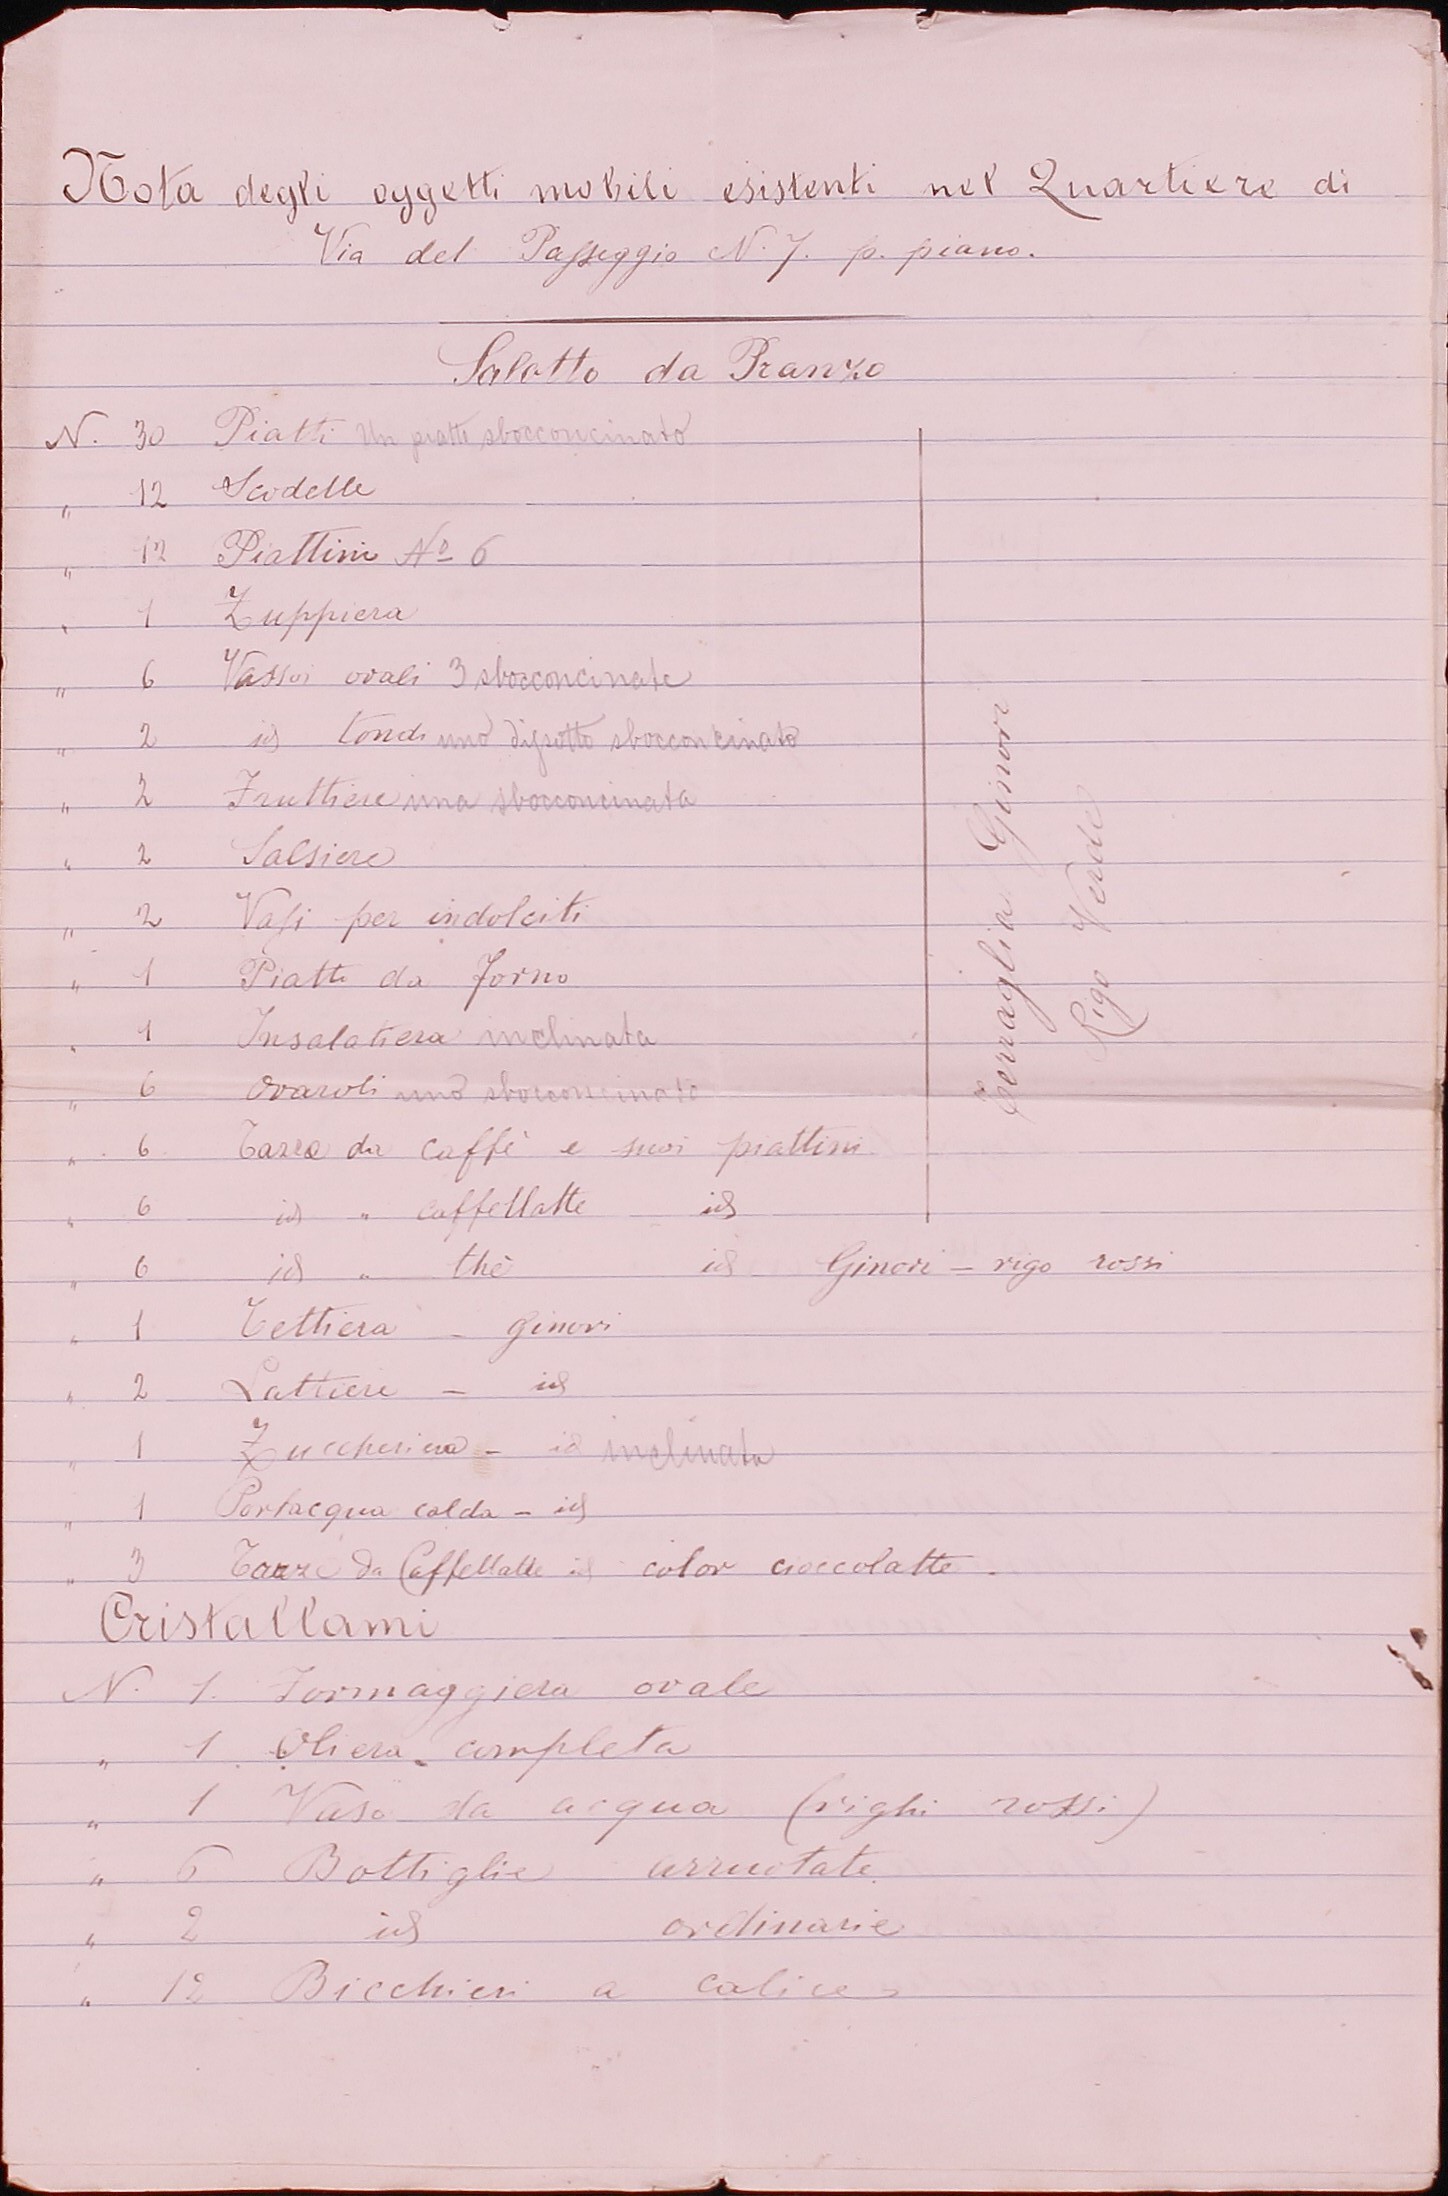 Nota degli oggetti mobili esistenti nel Quartiere di
Via del Passeggio N. 7. p. piano.
Salotto da Pranzo
N. 30 Piatti Un piatto sbocconcinato
„ 12 Scodelle
„ 12 Piattini No 6
„ 1 Zuppiera
„ 6 Vassoi ovali 3 sbocconcinate
„ 2 id tondi uno disotto sbocconcinato
„ 2 Fruttiere una sbocconcinata
„ 2 Salsiere
„ 2 Vasi per indolciti
„ 1 Piatto da forno
„ 1 Insalatiera inclinata
„ 6 Ovaroli uno sbocconcinato
„ 6 Tazze da caffè e suoi piattini
„ 6 id „ caffellatte id
Terraglia Ginori
Rigo Verde
„ 6 id „ thè id Ginori – rigo rossi
„ 1 Tettiera – Ginori
„ 2 Lattiere – id
„ 1 Zuccheriera – id inclinata
„ 1 Portacqua calda – id
„ 3 Tazze da Caffellatte id color cioccolatte.
Cristallami
N. 1. Formaggiera ovale
„ 1 Oliera completa
„ 1 Vaso da acqua (righi rossi)
„ 6 Bottiglie arruotate
„ 2 id ordinarie
„ 12 Bicchieri a calice